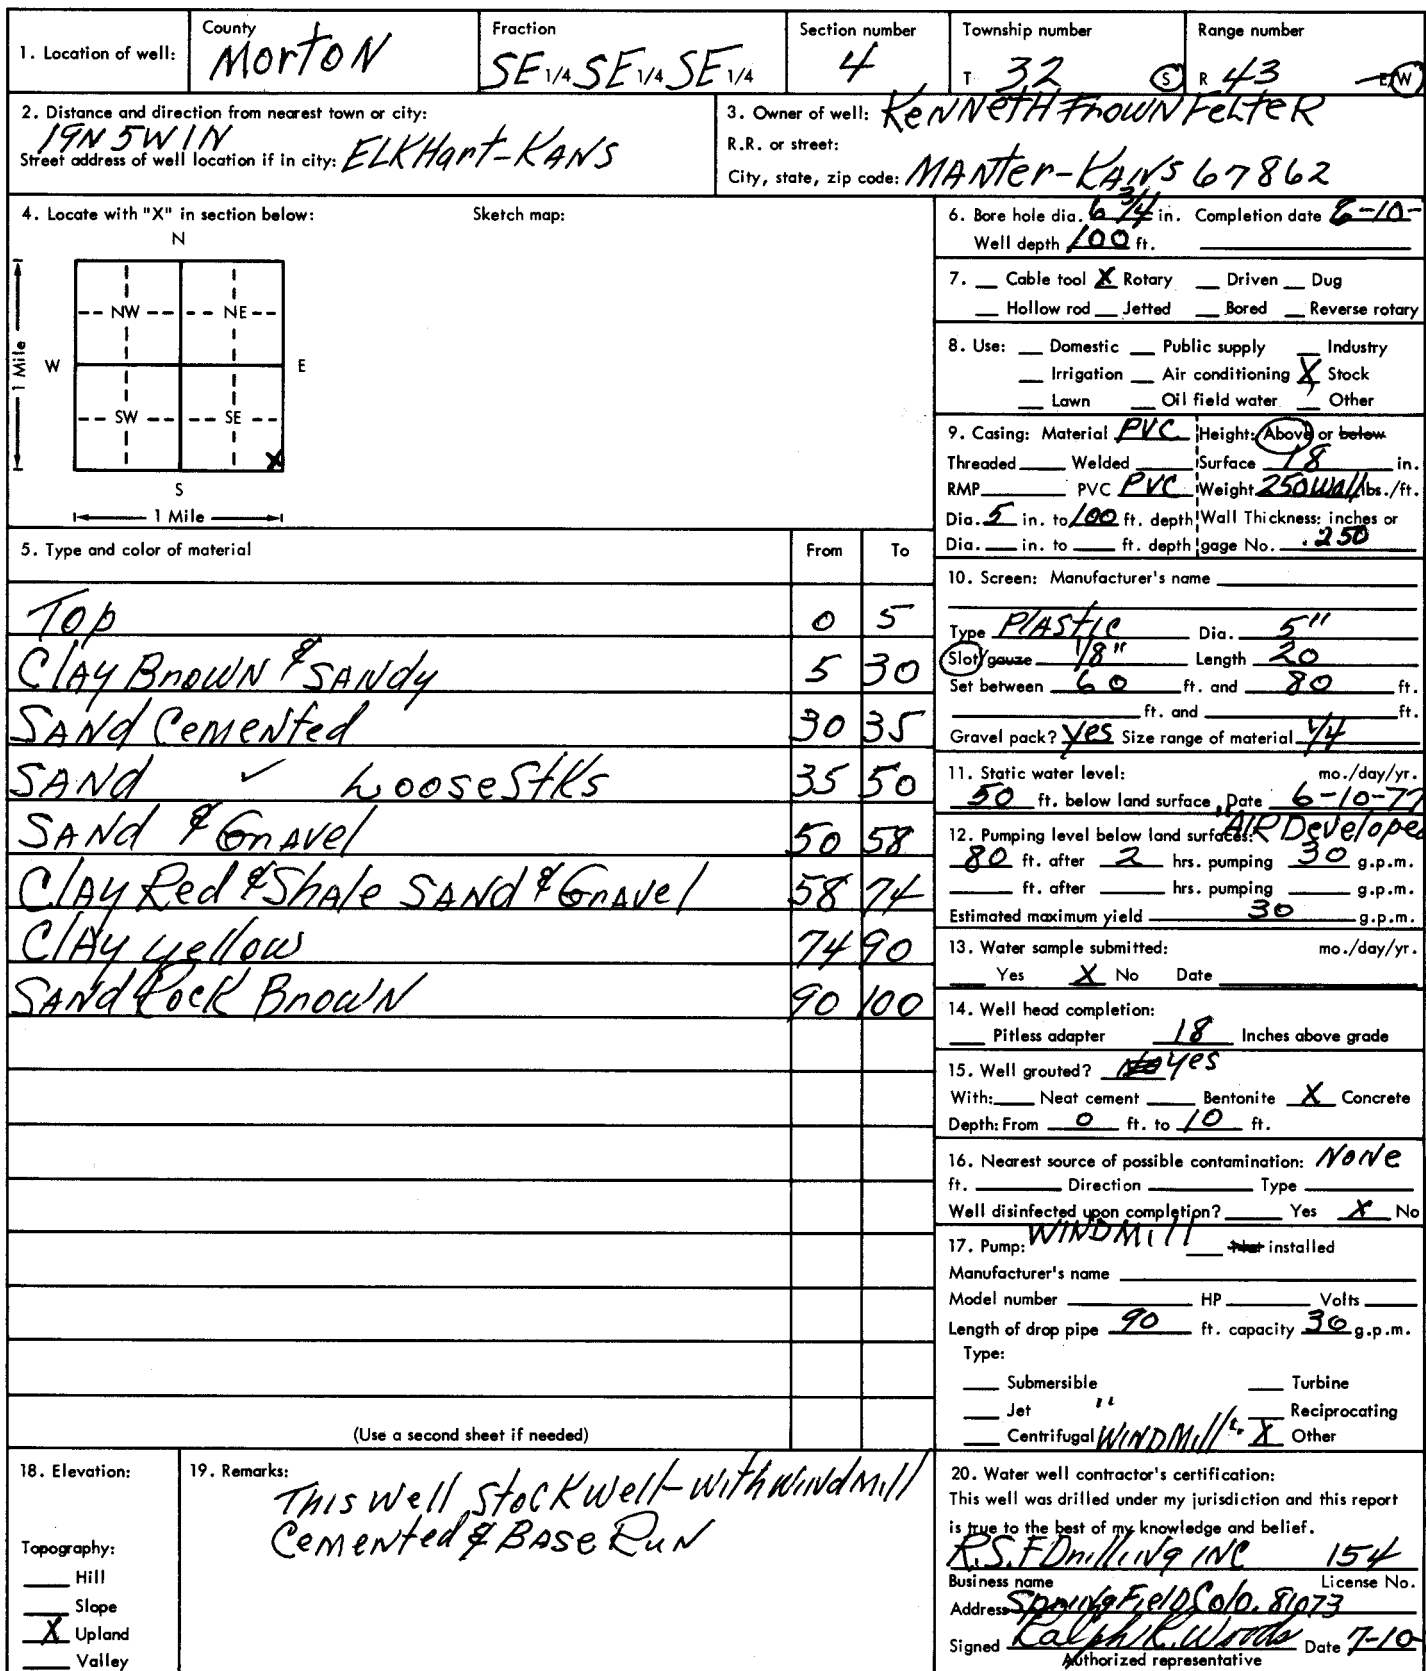 1. Location of well: County Morton Fraction SE 1/4 SE 1/4 SE 1/4 Section number 4 Township number T 32 S Range number R 43 E/W
2. Distance and direction from nearest town or city:
19N 5W 1N
Street address of well location if in city: ELKHart-KANS
3. Owner of well: KeNNetH FrowNFelteR
R.R. or street:
City, state, zip code: MANter-KANS 67862
4. Locate with "X" in section below: Sketch map:
N
NW NE
W E
1 Mile
SW SE
X
S
1 Mile
5. Type and color of material From To
Top 0 5
Clay Brown & Sandy 5 30
Sand Cemented 30 35
Sand ✓ Loose Stks 35 50
Sand & Gravel 50 58
Clay Red & Shale Sand & Gravel 58 74
Clay yellow 74 90
Sand Rock Brown 90 100
(Use a second sheet if needed)
6. Bore hole dia. 6 3/4 in. Completion date 6-10-
Well depth 100 ft.
7. __ Cable tool X Rotary __ Driven __ Dug
__ Hollow rod __ Jetted __ Bored __ Reverse rotary
8. Use: __ Domestic __ Public supply __ Industry
__ Irrigation __ Air conditioning X Stock
__ Lawn __ Oil field water __ Other
9. Casing: Material PVC Height: Above or below
Threaded ___ Welded ___ Surface 18 in.
RMP ___ PVC PVC Weight 250 Wall lbs./ft.
Dia. 5 in. to 100 ft. depth Wall Thickness: inches or
Dia. __ in. to __ ft. depth gage No. .250
10. Screen: Manufacturer's name
Type Plastic Dia. 5"
Slot/gauze 1/8" Length 20
Set between 60 ft. and 80 ft.
___ ft. and ___ ft.
Gravel pack? Yes Size range of material 1/4
11. Static water level: mo./day/yr.
50 ft. below land surface Date 6-10-77
12. Pumping level below land surfaces: "AIR Developed
80 ft. after 2 hrs. pumping 30 g.p.m.
___ ft. after ___ hrs. pumping ___ g.p.m.
Estimated maximum yield 30 g.p.m.
13. Water sample submitted: mo./day/yr.
__ Yes X No Date
14. Well head completion:
__ Pitless adapter 18 Inches above grade
15. Well grouted? No yes
With: __ Neat cement __ Bentonite X Concrete
Depth: From 0 ft. to 10 ft.
16. Nearest source of possible contamination: None
ft. ___ Direction ___ Type ___
Well disinfected upon completion? __ Yes X No
17. Pump: WINDMill __ Not installed
Manufacturer's name
Model number ___ HP ___ Volts ___
Length of drop pipe 90 ft. capacity 30 g.p.m.
Type:
__ Submersible __ Turbine
__ Jet __ Reciprocating
__ Centrifugal "WINDMill" X Other
18. Elevation:
Topography:
__ Hill
__ Slope
X Upland
__ Valley
19. Remarks:
This Well Stock Well-With Windmill
Cemented & Base Run
20. Water well contractor's certification:
This well was drilled under my jurisdiction and this report
is true to the best of my knowledge and belief.
R.S.F Drilling INC 154
Business name License No.
Address SpringField Colo. 81073
Signed Ralph R. Woods Date 7-10-
Authorized representative